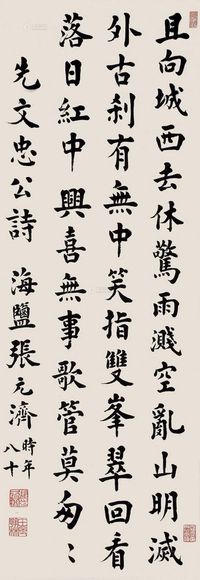 且向城西去休驚雨濺空亂山明滅
外古刹有無中笑指雙峯翠回看
落日紅中興喜無事歌管莫匆〻
先文忠公詩 海鹽張元濟時年八十